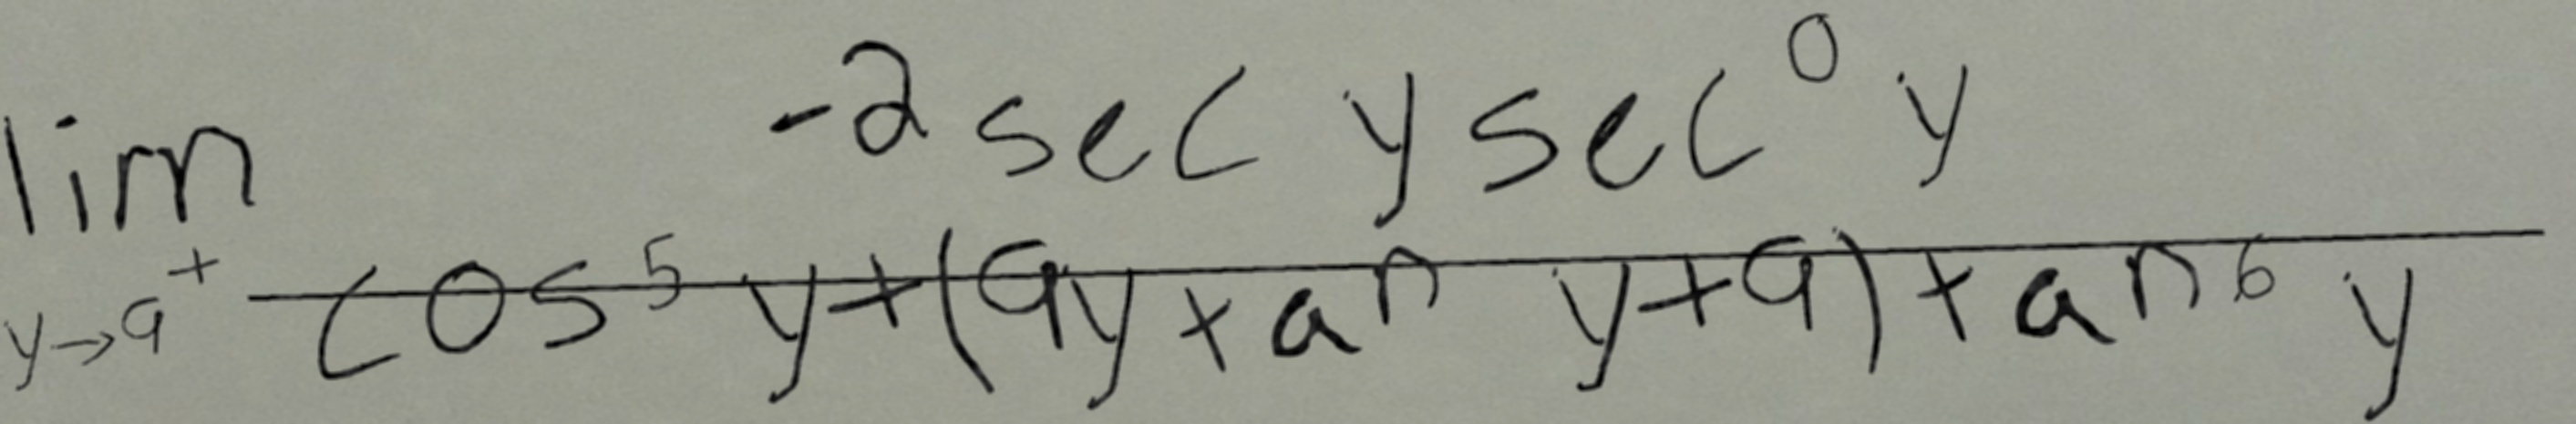 \lim_{y \to 9^+} \frac{-2 \sec y \sec^0 y}{\cos^5 y + (9y \tan y + 9) \tan^6 y}